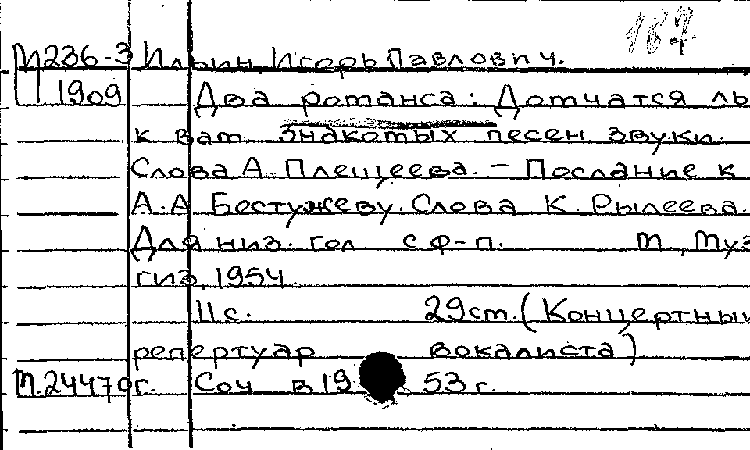 187
М236-3 Ильин, Игорь Павлович.
1909 Два романса: Домчатся ль
к вам знакомых песен звуки.
Слова А. Плещеева. – Послание к
А.А Бестужеву. Слова К. Рылеева.
Для низ. гол с ф-п. М, Муз
гиз, 1954
11с. 29см. (Концертный
репертуар вокалиста)
М.24479г. Соч в 1953г.